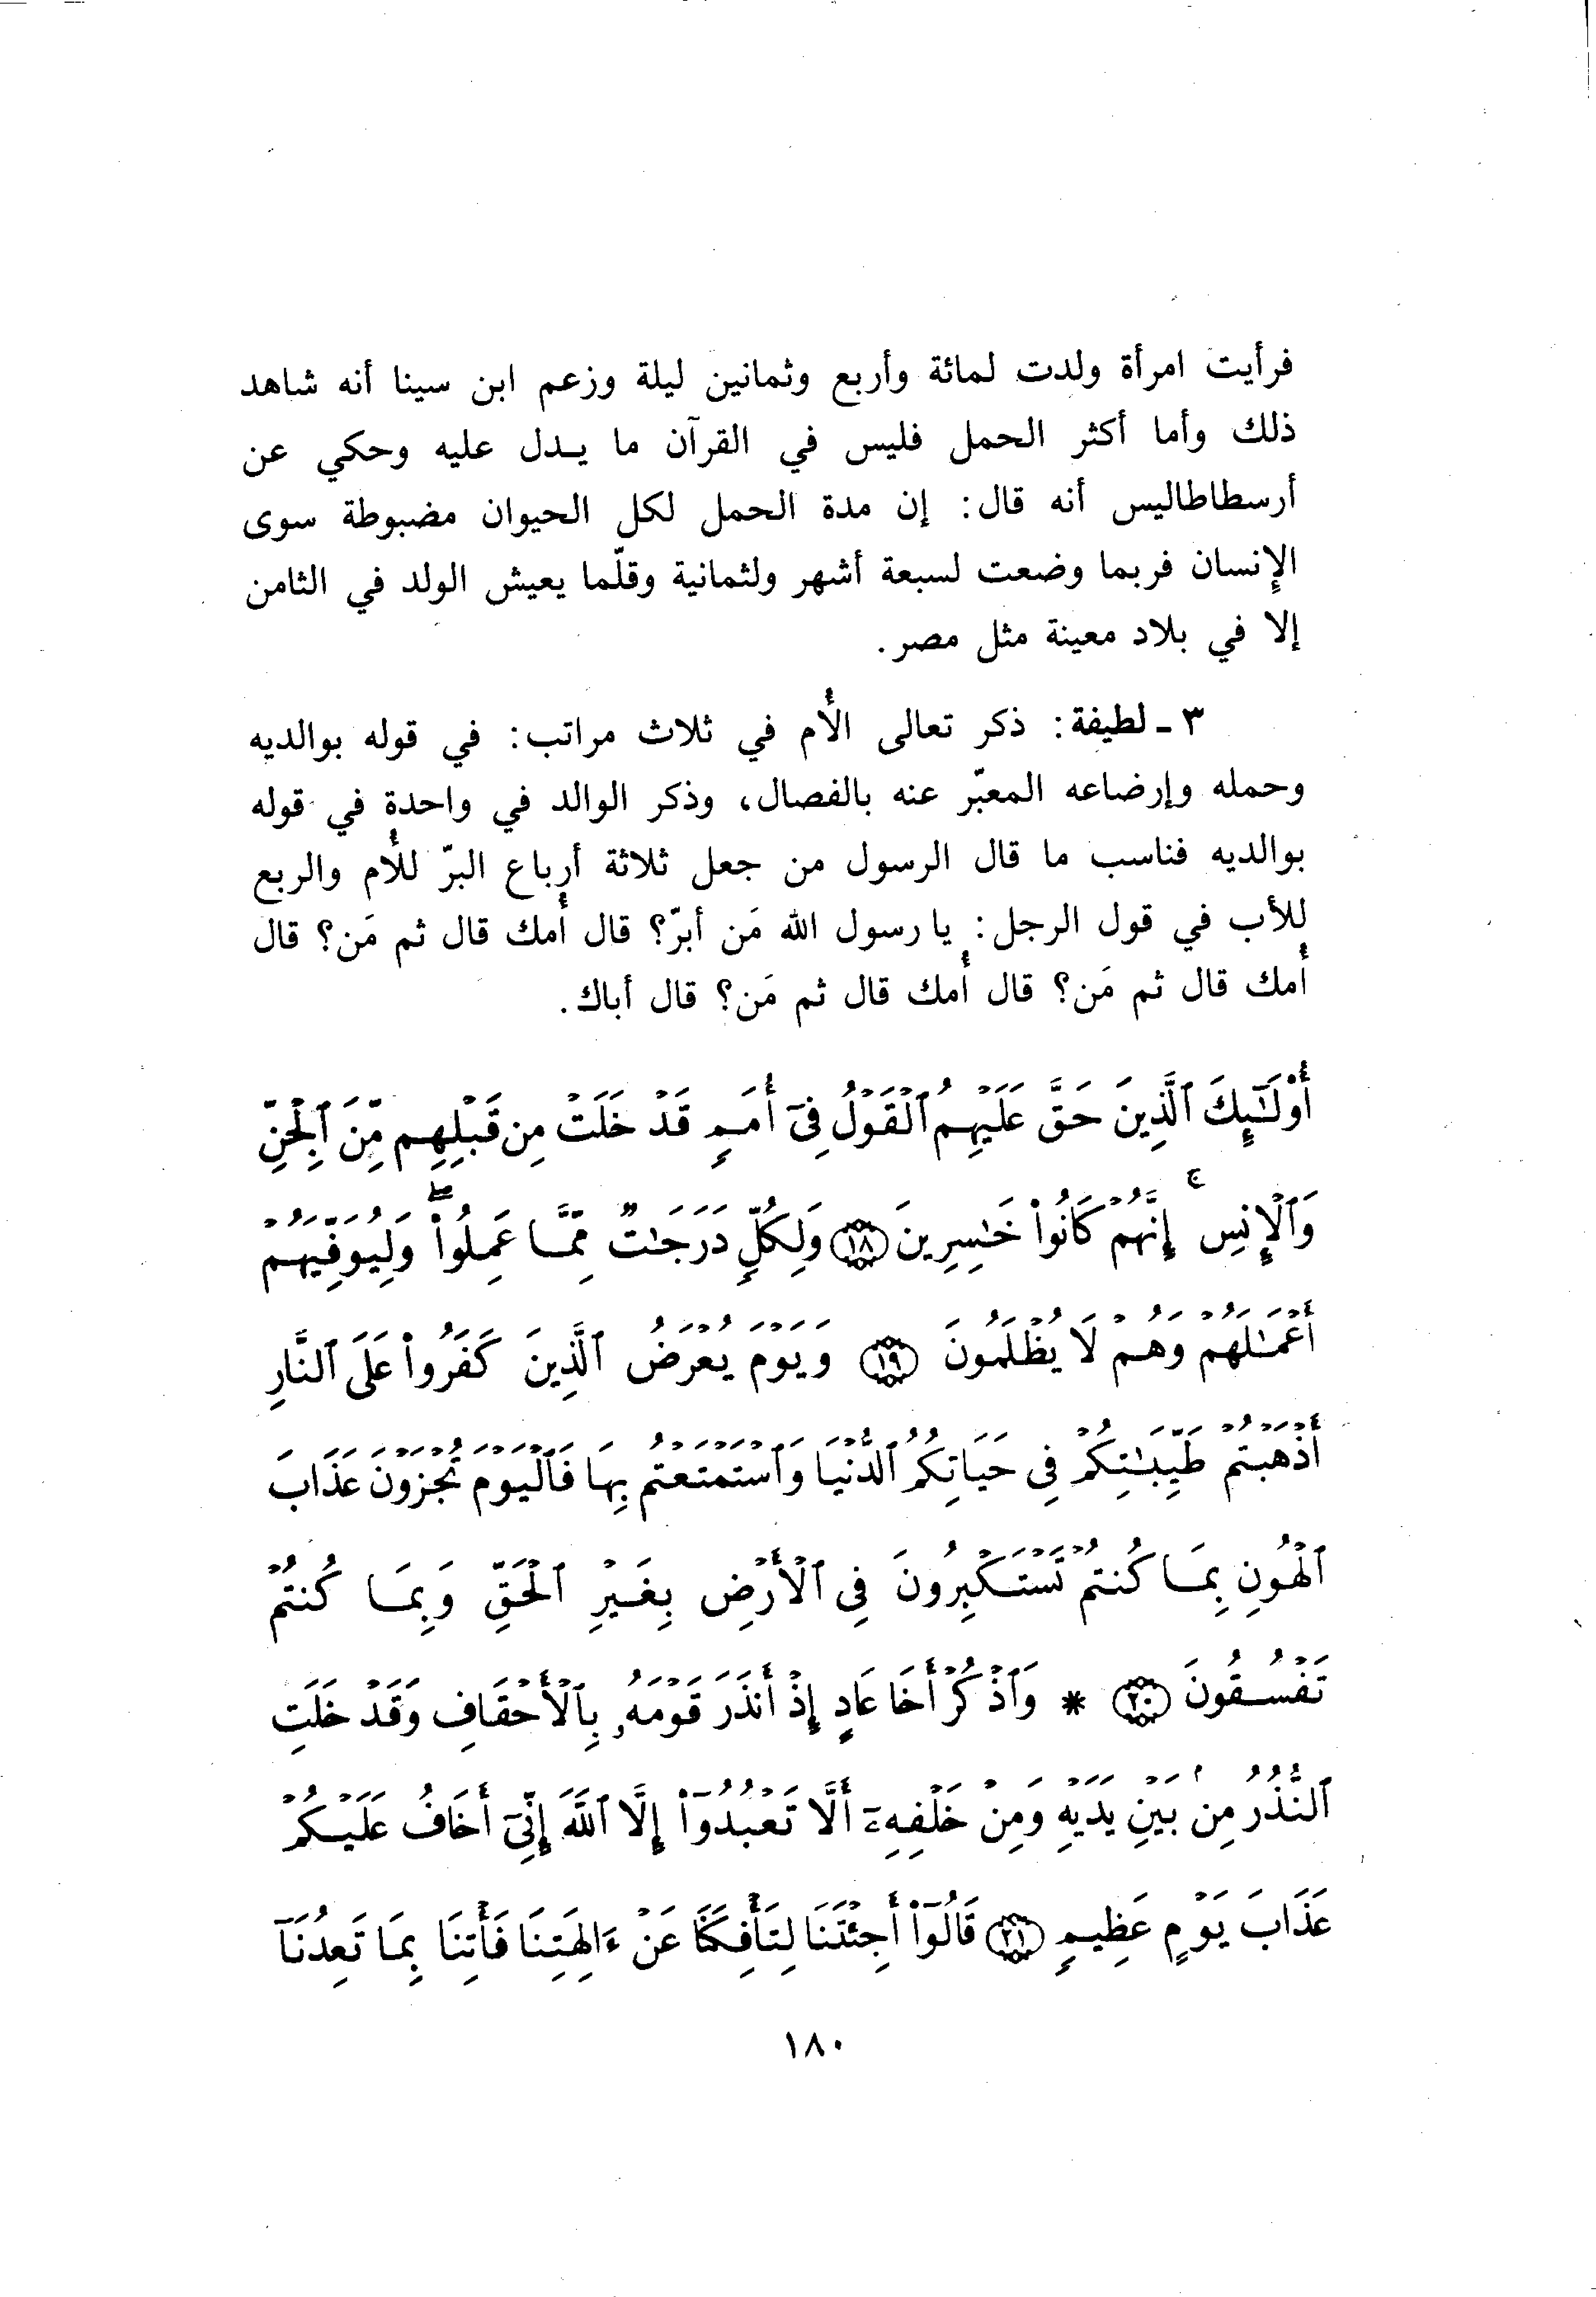 فرأيت امرأة ولدت لمائة وأربع وثمانين ليلة وزعم ابن سينا أنه شاهد
ذلك وأما أكثر الحمل فليس في القرآن ما يـدل عليه وحكي عن
أرسطاطاليس أنه قال: إن مدة الحمل لكل الحيوان مضبوطة سوى
الإنسان فربما وضعت لسبعة أشهر ولثمانية وقلّما يعيش الولد في الثامن
إلا في بلاد معينة مثل مصر.
٣ ـ لطيفة: ذكر تعالى الأُم في ثلاث مراتب: في قوله بوالديه
وحمله وإرضاعه المعبّر عنه بالفصال، وذكر الوالد في واحدة في قوله
بوالديه فناسب ما قال الرسول من جعل ثلاثة أرباع البرّ للأُم والربع
للأب في قول الرجل: يا رسول الله مَن أبرّ؟ قال أُمك قال ثم مَن؟ قال
أُمك قال ثم مَن؟ قال أُمك قال ثم مَن؟ قال أباك.
أُوْلَـٰٓئِكَ ٱلَّذِينَ حَقَّ عَلَيْهِمُ ٱلْقَوْلُ فِىٓ أُمَمٍ قَدْ خَلَتْ مِن قَبْلِهِم مِّنَ ٱلْجِنِّ
وَٱلْإِنسِ ۚ إِنَّهُمْ كَانُوا۟ خَـٰسِرِينَ ﴿١٨﴾ وَلِكُلٍّ دَرَجَـٰتٌ مِّمَّا عَمِلُوا۟ ۖ وَلِيُوَفِّيَهُمْ
أَعْمَـٰلَهُمْ وَهُمْ لَا يُظْلَمُونَ ﴿١٩﴾ وَيَوْمَ يُعْرَضُ ٱلَّذِينَ كَفَرُوا۟ عَلَى ٱلنَّارِ
أَذْهَبْتُمْ طَيِّبَـٰتِكُمْ فِى حَيَاتِكُمُ ٱلدُّنْيَا وَٱسْتَمْتَعْتُم بِهَا فَٱلْيَوْمَ تُجْزَوْنَ عَذَابَ
ٱلْهُونِ بِمَا كُنتُمْ تَسْتَكْبِرُونَ فِى ٱلْأَرْضِ بِغَيْرِ ٱلْحَقِّ وَبِمَا كُنتُمْ
تَفْسُقُونَ ﴿٢٠﴾ * وَٱذْكُرْ أَخَا عَادٍ إِذْ أَنذَرَ قَوْمَهُۥ بِٱلْأَحْقَافِ وَقَدْ خَلَتِ
ٱلنُّذُرُ مِنۢ بَيْنِ يَدَيْهِ وَمِنْ خَلْفِهِۦٓ أَلَّا تَعْبُدُوٓا۟ إِلَّا ٱللَّهَ إِنِّىٓ أَخَافُ عَلَيْكُمْ
عَذَابَ يَوْمٍ عَظِيمٍ ﴿٢١﴾ قَالُوٓا۟ أَجِئْتَنَا لِتَأْفِكَنَا عَنْ ءَالِهَتِنَا فَأْتِنَا بِمَا تَعِدُنَآ
١٨٠